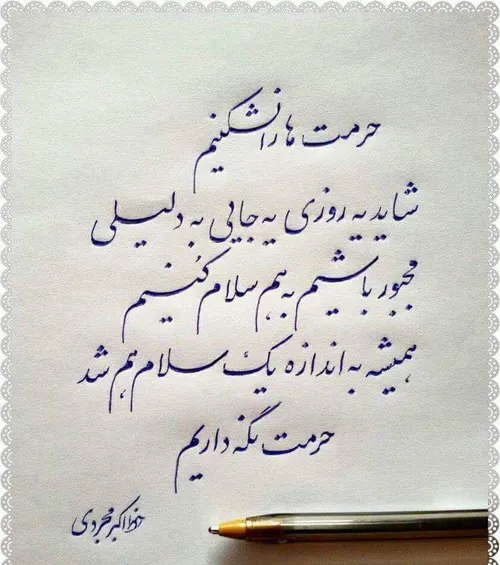 حرمت ها را نشکنیم
شاید یه روزی یه جایی به دلیلی
مجبور باشیم به هم سلام کنیم
همیشه به اندازه یک سلام هم شد
حرمت نگه داریم
خط اکبر مجردی